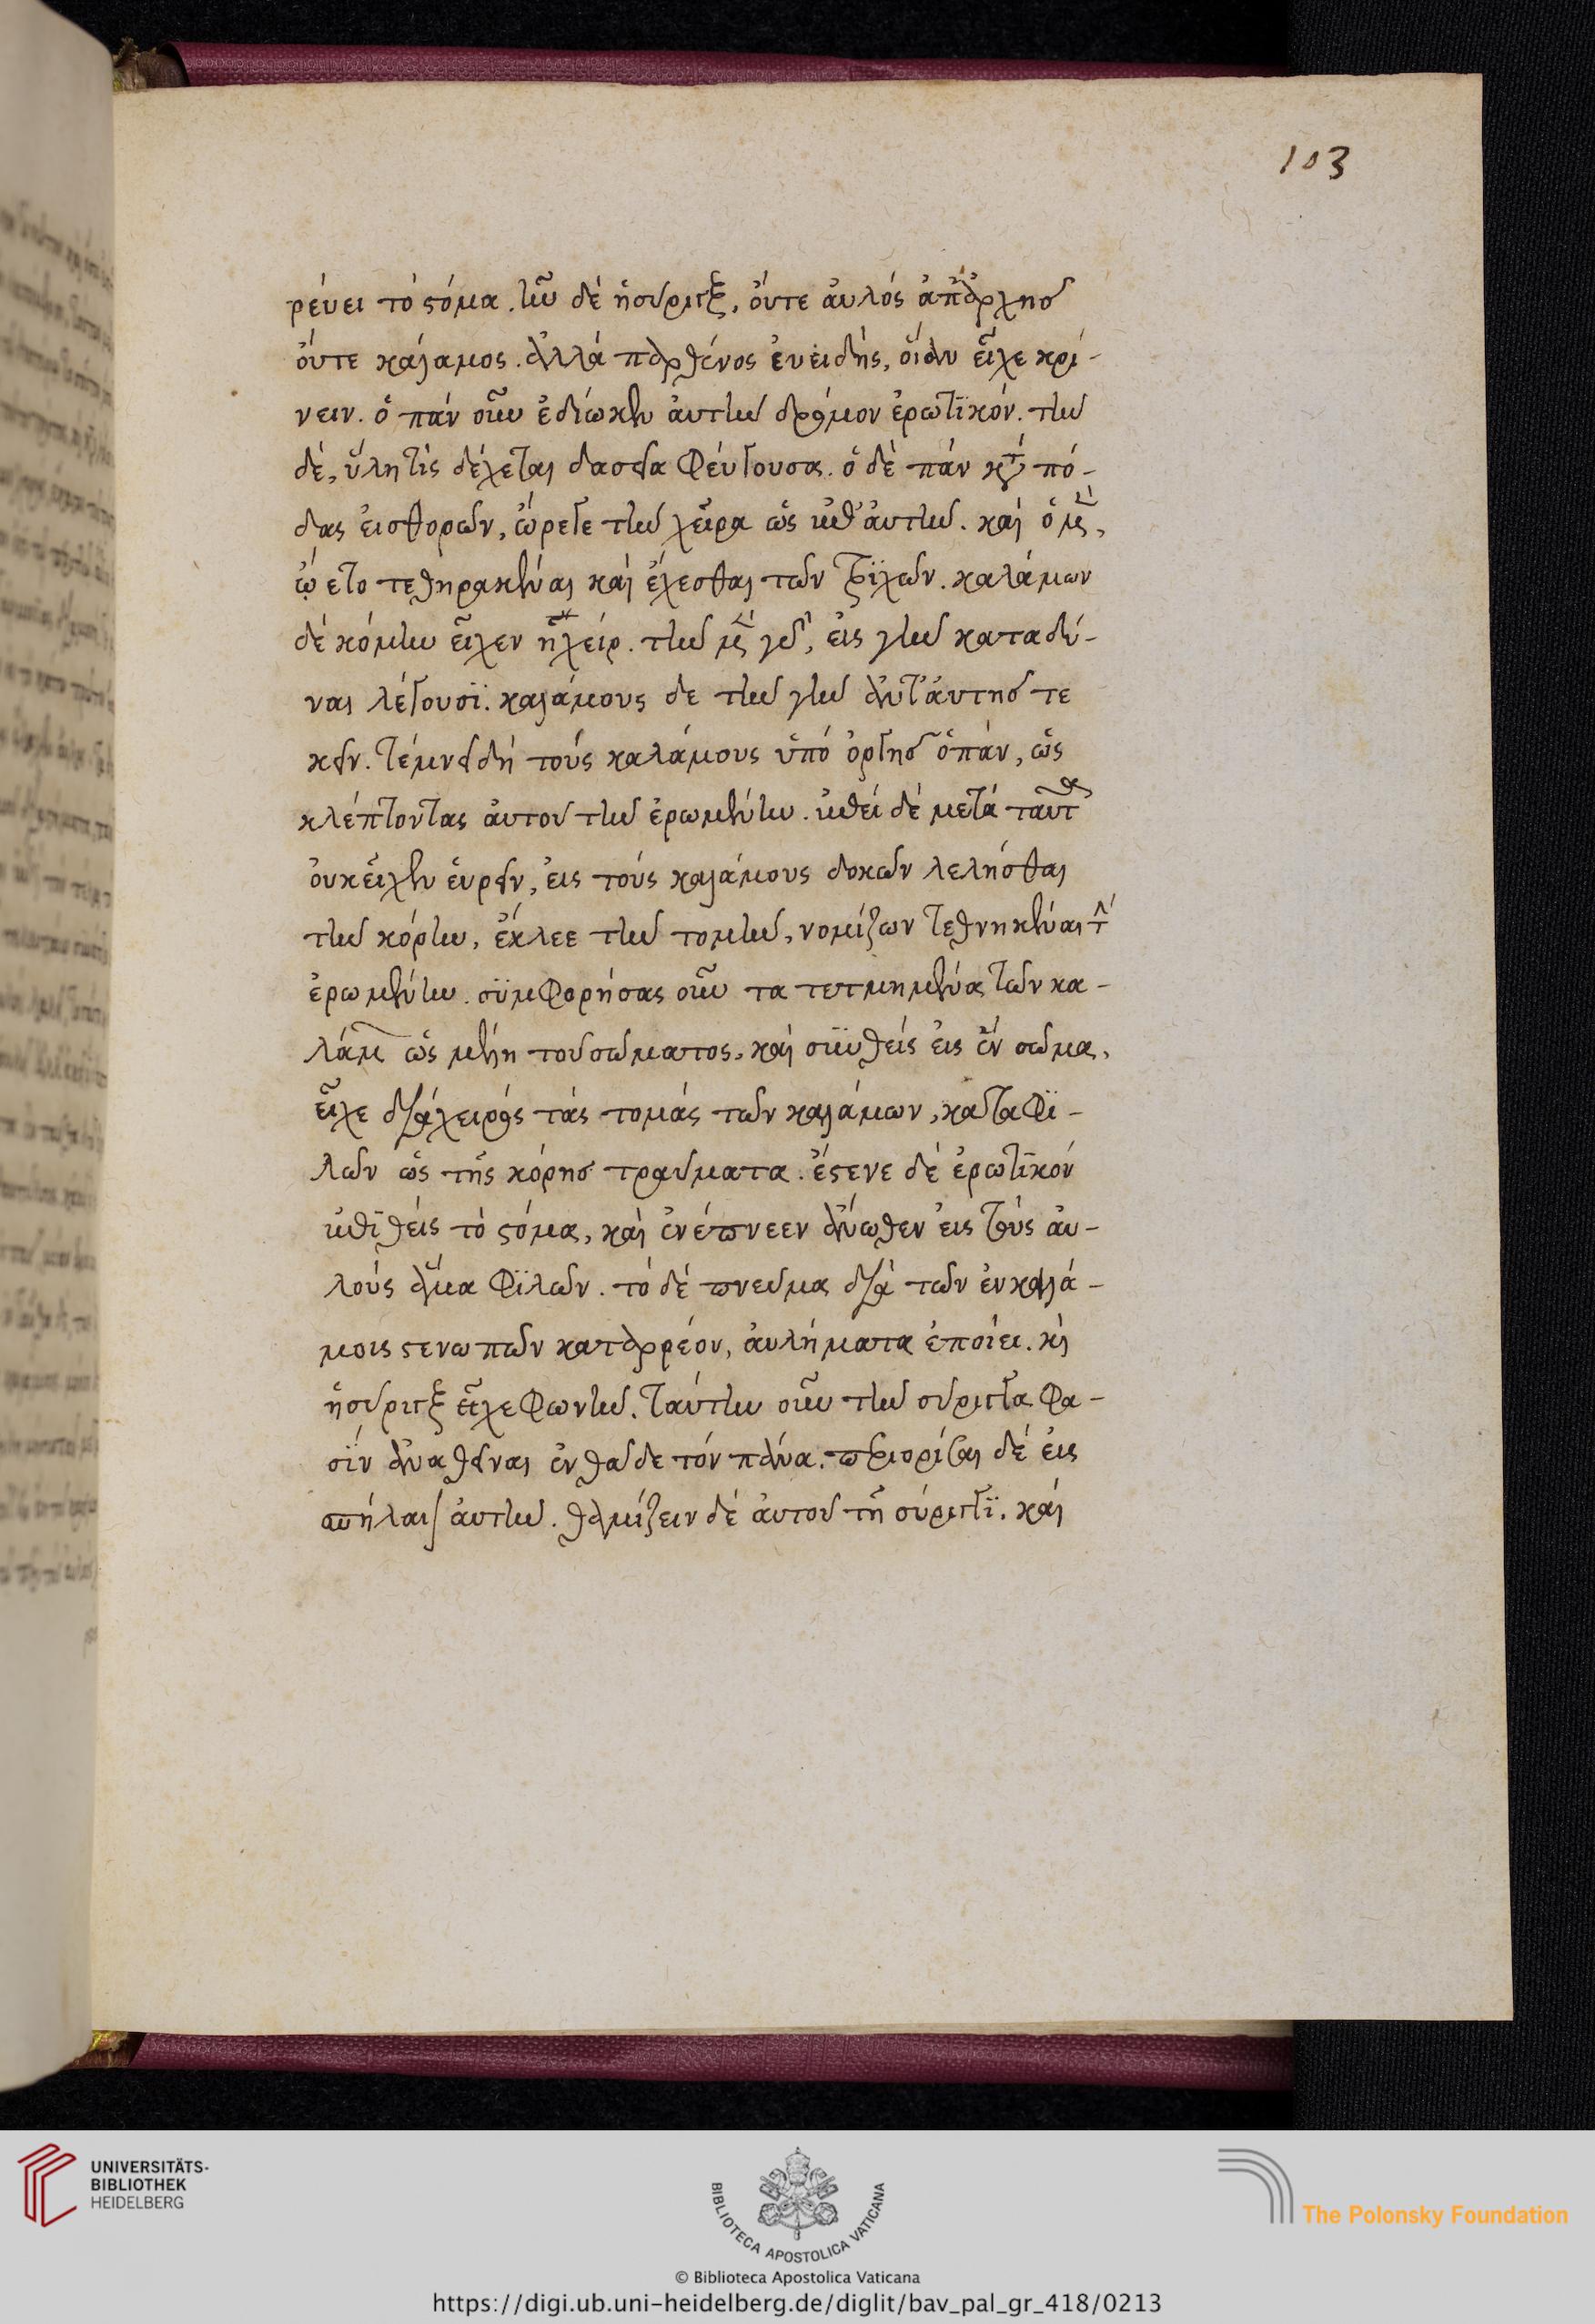 103
ρεύει τὸ στόμα. ἦν δὲ ἡ σύριγξ, οὔτε αὐλὸς ἀπ' ἀρχῆς
οὔτε κάλαμος. ἀλλὰ παρθένος εὐειδὴς, οἵαν εἶχε κρί-
νειν. ὁ πὰν οὖν ἐδίωκεν αὐτὴν δρόμον ἐρωτικόν. τὴν
δὲ, ὕλη τὶς δέχεται δασεῖα φεύγουσαν. ὁ δὲ πὰν κατὰ πό-
δας εἰσθορὼν, ὤρεγε τὴν χεῖρα ὡς ἐπ' αὐτήν. καὶ ὁ μὲν,
ᾤετο τεθηρακέναι καὶ ἔχεσθαι τῶν τριχῶν. καλάμων
δὲ κόμην εἶχεν ἡ χείρ. τὴν μὲν γὰρ, εἰς γῆν καταδῦ-
ναι λέγουσι. καλάμους δὲ τὴν γῆν ἀντ' αὐτῆς τε
κεῖν. τέμνει δὴ τοὺς καλάμους ὑπὸ ὀργῆς ὁ πὰν, ὡς
κλέπτοντας αὐτοῦ τὴν ἐρωμένην. ἐπεὶ δὲ μετὰ ταῦτα
οὐκ εἶχεν εὑρεῖν, εἰς τοὺς καλάμους δοκῶν λελῦσθαι
τὴν κόρην, ἔκλαε τὴν τομὴν, νομίζων τεθνηκέναι τὴν
ἐρωμένην. συμφορήσας οὖν τὰ τετμημένα τῶν κα-
λάμων ὡς μέλη τοῦ σώματος, καὶ συνθεὶς εἰς ἓν σῶμα,
εἶχε διὰ χειρὸς τὰς τομὰς τῶν καλάμων, καταφι-
λῶν ὡς τῆς κόρης τραύματα. ἔστενε δὲ ἐρωτικὸν
ἐπιθεὶς τὸ στόμα, καὶ ἐνέπνεεν ἄνωθεν εἰς τοὺς αὐ-
λοὺς ἅμα φιλῶν. τὸ δὲ πνεῦμα διὰ τῶν ἐν καλά-
μοις στενωπῶν καταρρέον, αὐλήματα ἐποίει. καὶ
ἡ σύριγξ εἶχε φωνήν. ταύτην οὖν τὴν σύριγγα φα-
σὶν ἀναθεῖναι ἐνθάδε τὸν πᾶνα. περιορίσαι δὲ εἰς
σπήλαιον αὐτήν. θαμίζειν δὲ αὐτοῦ τῇ σύριγγι. καὶ
UNIVERSITÄTS-
BIBLIOTHEK
HEIDELBERG
BIBLIOTECA APOSTOLICA VATICANA
The Polonsky Foundation
© Biblioteca Apostolica Vaticana
https://digi.ub.uni-heidelberg.de/diglit/bav_pal_gr_418/0213